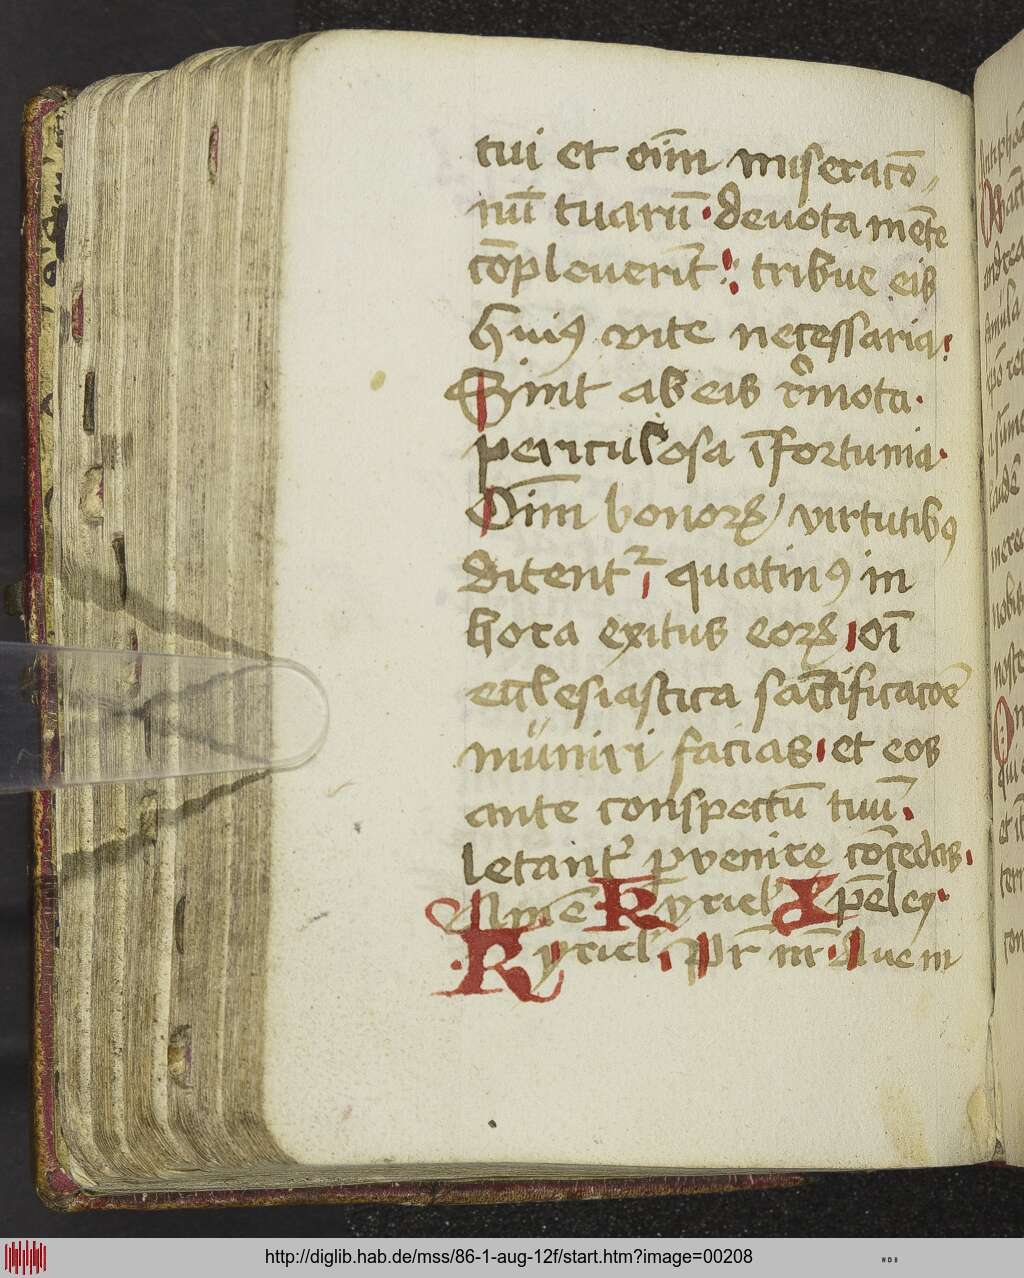 tui et oīm miseracō
nū tuarū · devota mēte
cōpleverīt : tribue eis
huiꝰ vite necessaria
Sint ab eis r̄mota ·
periculosa īfortunia ·
Oīm bonorꝝ virtutibꝰ
ditent᷑ quatinꝰ in
hora exitus eorꝝ oī
ecclesiastica sāctificacōe
muniri facias et eos
ante conspectū tuū
letant᷑ pvenire cōcedas
Amē Kyriel xp̄eley
Kyriel Pr̄ nr̄ Aue m
http://diglib.hab.de/mss/86-1-aug-12f/start.htm?image=00208